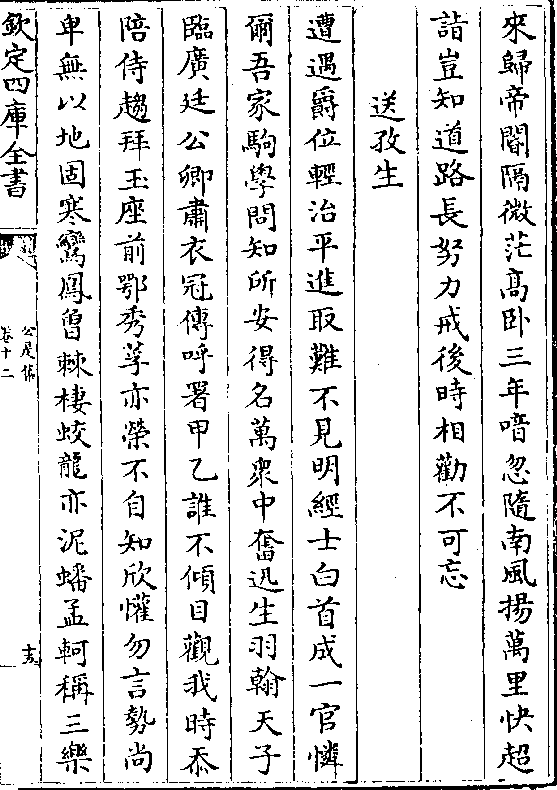 來歸帝閽隔微茫髙卧三年喑忽隨南風揚萬里快超
詣豈知道路長努力戒後時相勸不可忘
送孜生
遭遇爵位輕治平進取難不見明經士白首成一官憐
爾吾家駒學問知所安得名萬衆中奮迅生羽翰天子
臨廣廷公卿肅衣冠傳呼署甲乙誰不傾目觀我時忝
陪侍趨拜玉座前鄂秀萼亦榮不自知欣懽勿言勢尚
卑無以地固寒鸞鳳曽棘棲蛟龍亦泥蟠孟軻稱三樂
欽定四庫全書
公是集
卷十二
十五